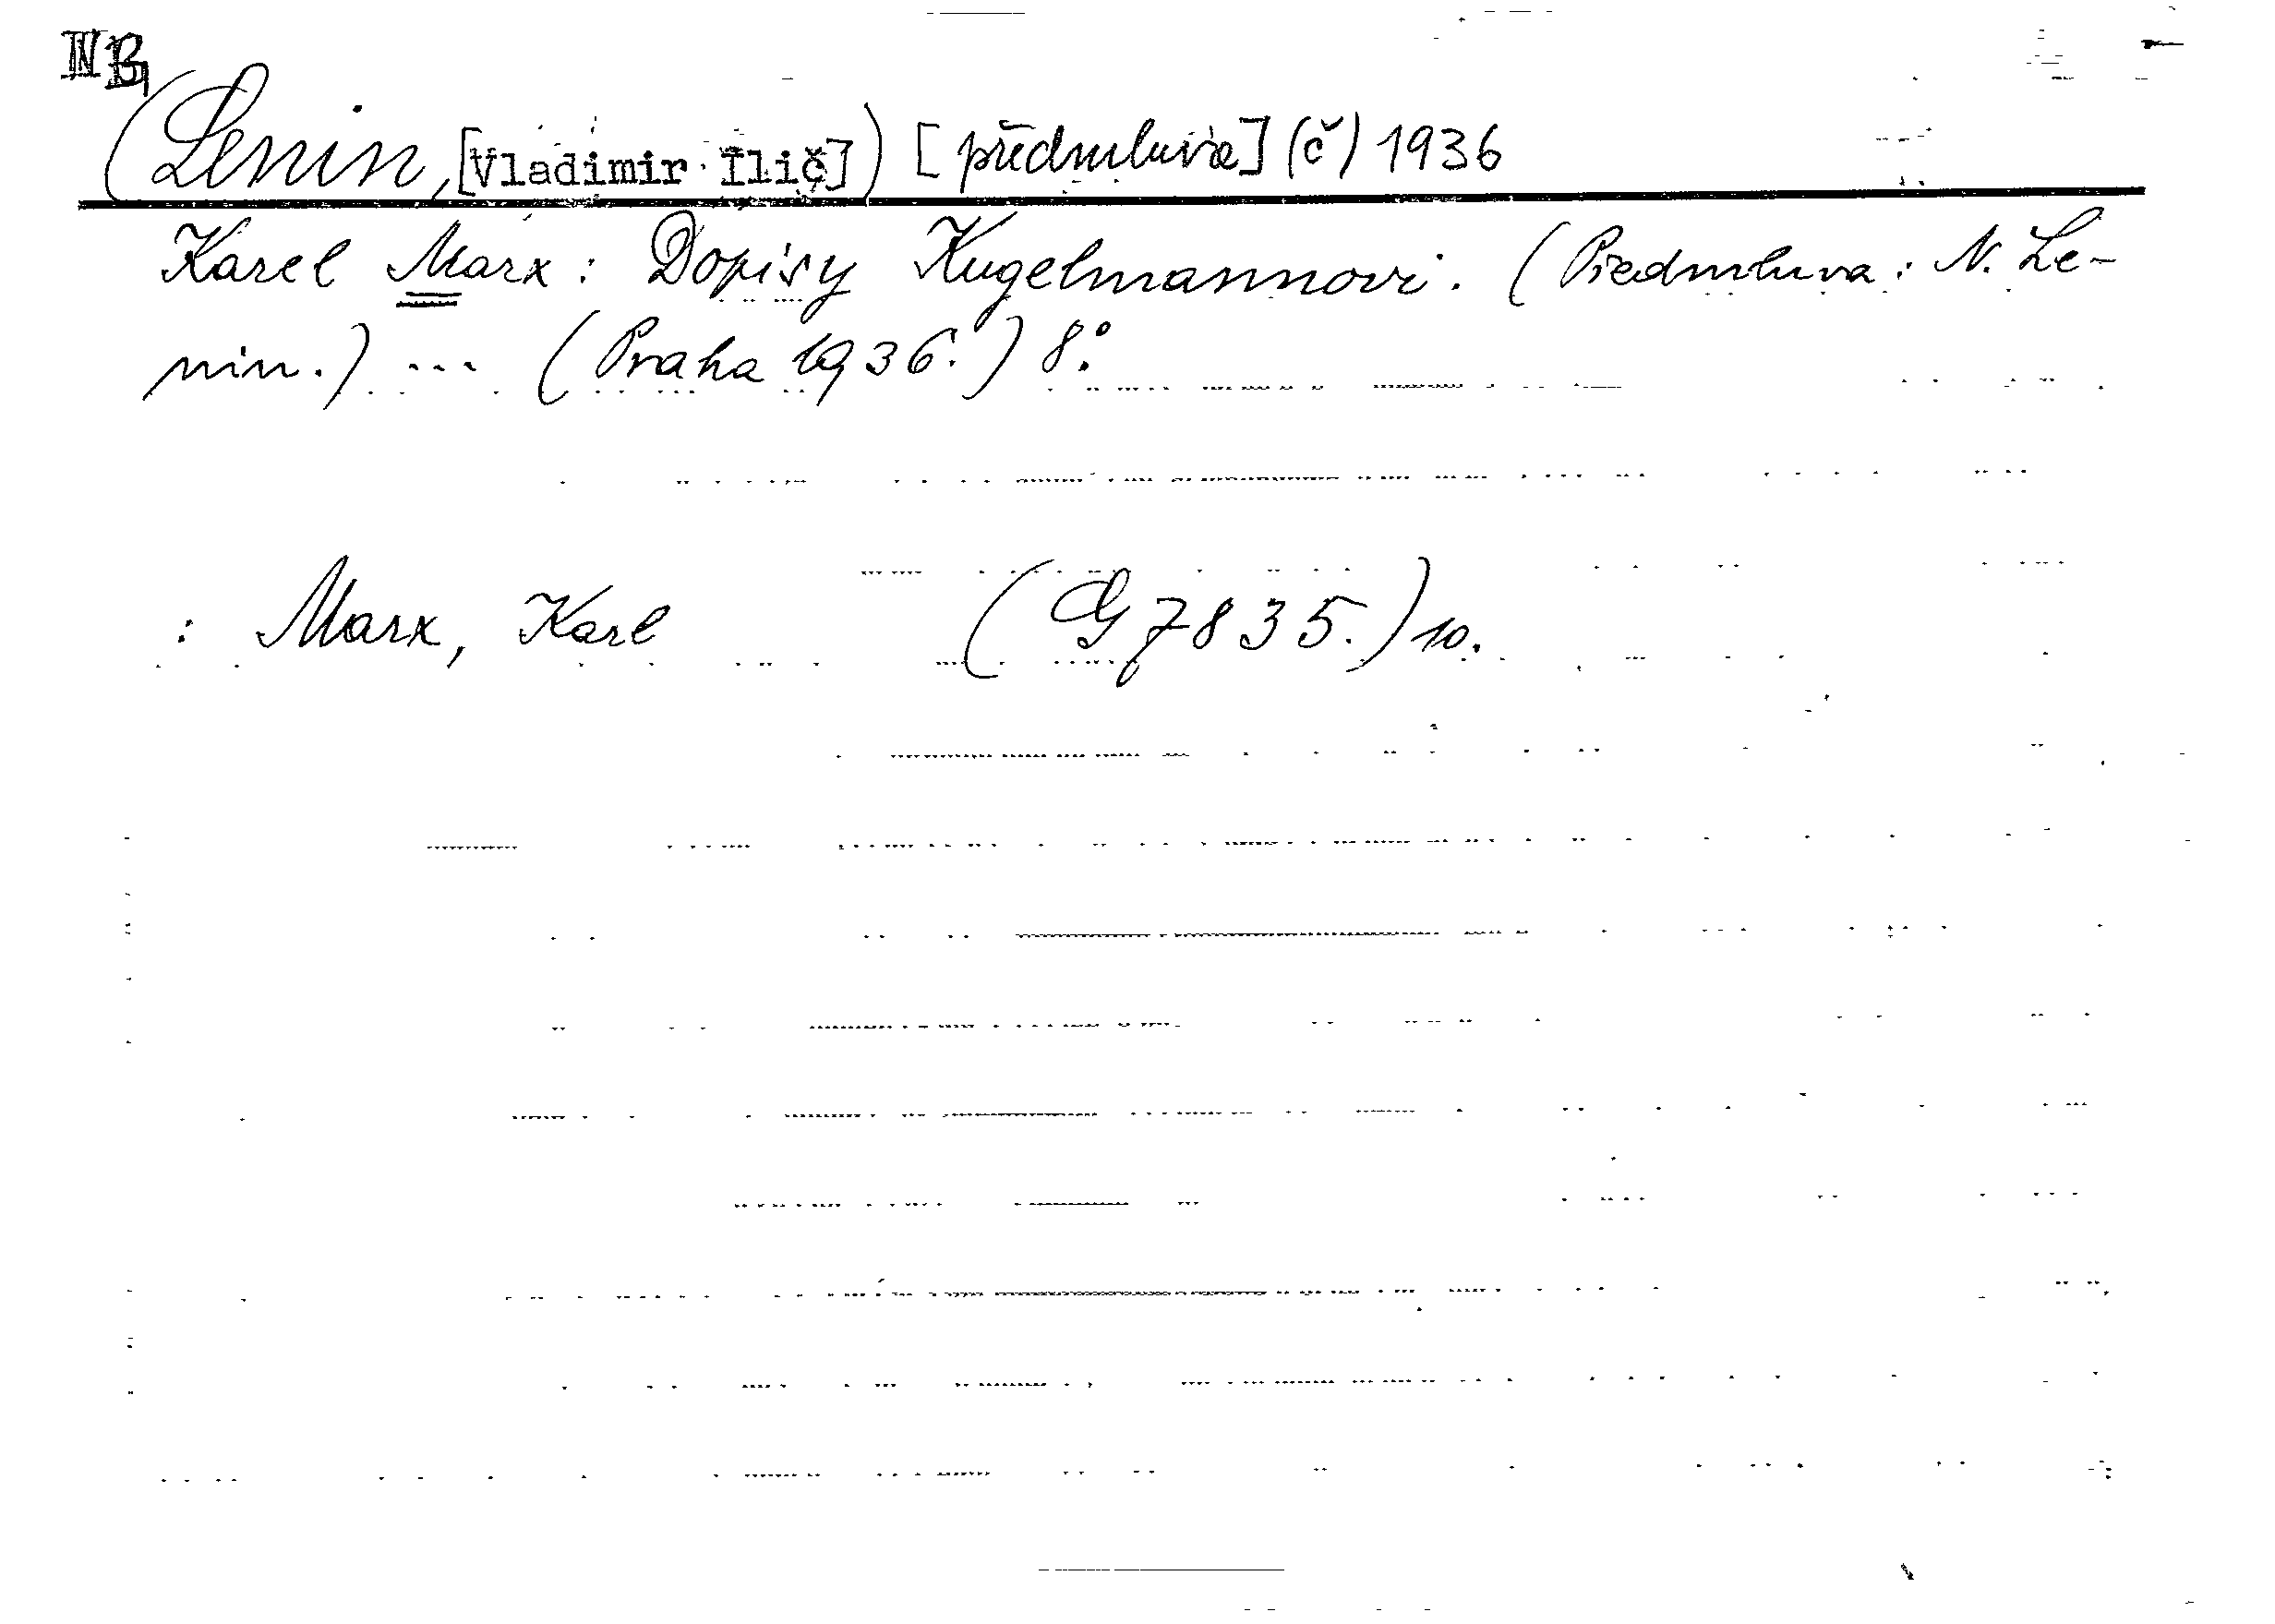 (Lenin, [Vladimir Ilič]) [předmluva] (č) 1936
Karel Marx: Dopisy Kugelmannovi. (Předmluva: N. Le-
nin.) ... (Praha 1936.) 8°.
: Marx, Karl (G 7835.) 10.